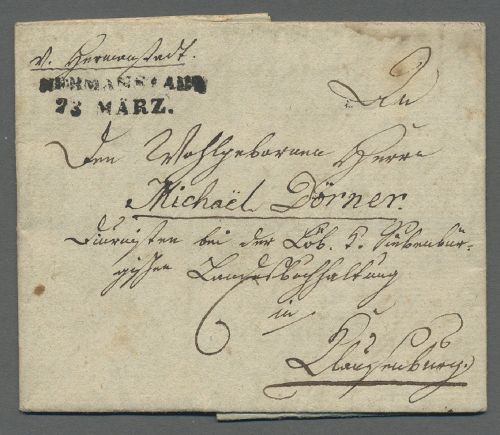 v. Hermanstadt.
HERMANSTADT
23 MÄRZ.
An
Den Wohlgebornen Herrn
Michaël Dörner.
Diurnisten bei der Löb. K. Siebenbür-
gischen Landesbuchhaltung
in
6
Klausenburg.